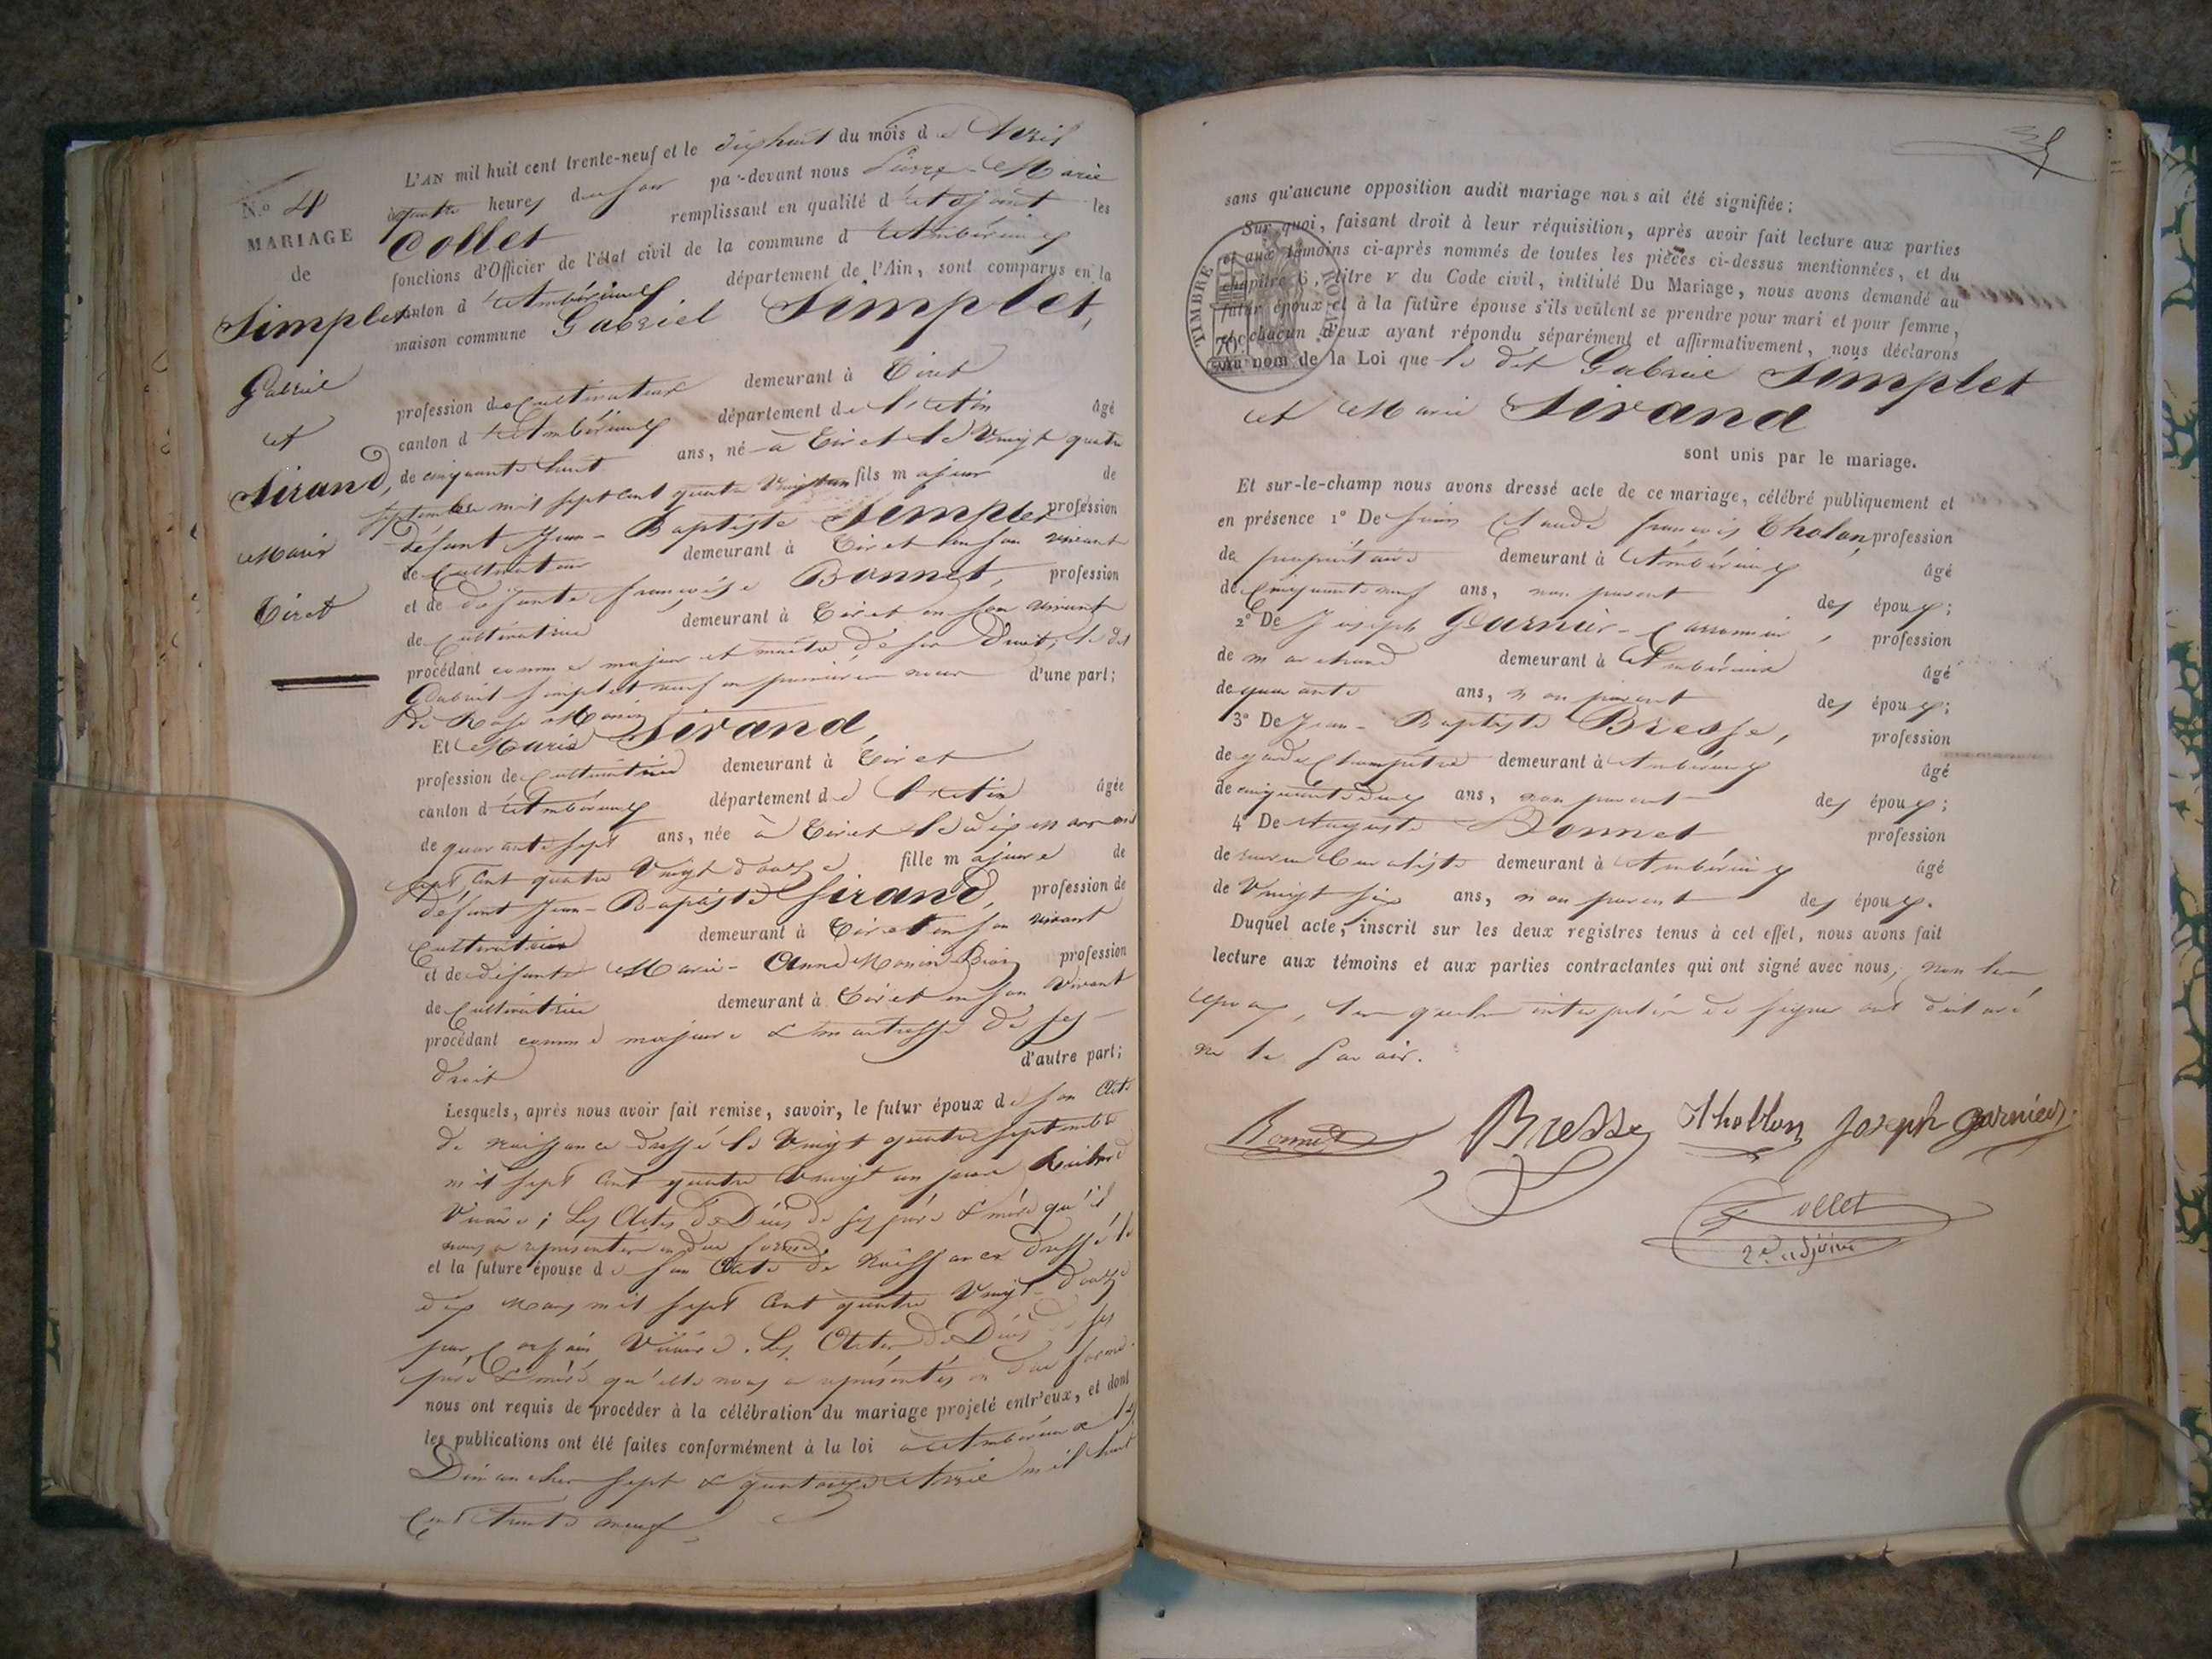 N.o 4
MARIAGE
de
Simplet
Gabriel
et
Sirand,
Marie
Tiret
L'AN mil huit cent trente-neuf et le dix huit du mois de Avril
à quatre heures du soir par-devant nous Pierre-Marie
Collet remplissant en qualité d'Adjoint les
fonctions d'Officier de l'état civil de la commune d'Ambérieux
canton d'Ambérieux département de l'Ain, sont comparus en la
maison commune Gabriel Simplet,
profession de Cultivateur demeurant à Tiret
canton d'Ambérieux département de l'Ain âgé
de cinquante huit ans, né à Tiret le Vingt quatre
septembre mil sept cent quatre Vingt un fils majeur de
défunt Jean-Baptiste Simplet profession
de Cultivateur demeurant à Tiret en son vivant
et de défunte françoise Bonnet, profession
de Cultivatrice demeurant à Tiret en son vivant
procédant comme majeur et maître de ses Droits, le dit
Gabriel Simplet veuf en premières noces d'une part;
De Rose Monin
Et Marie Sirand,
profession de Cultivatrice demeurant à Tiret
canton d'Ambérieux département de l'Ain âgée
de quarante sept ans, née à Tiret le dix mars mil
sept Cent quatre Vingt douze fille majeure de
défunt Jean-Baptiste Sirand, profession de
Cultivateur demeurant à Tiret en son vivant
et de défunte Marie-Anne Monin profession
de Cultivatrice demeurant à Tiret en son Vivant
procédant comme majeure & maitresse de ses
droits d'autre part;
Lesquels, après nous avoir fait remise, savoir, le futur époux de son Acte
de Naissance dressé le Vingt quatre septembre
mil sept Cent quatre Vingt un par
Vicaire; Les Actes de Décès de ses père & mère qu'il
nous a représentés en due forme,
et la future épouse de son Acte de Naissance dressé le
dix Mars mil sept Cent quatre Vingt-douze
par Vicaire. Les Actes de Décès de ses
père & mère qu'elle nous a représentés en due forme
nous ont requis de procéder à la célébration du mariage projeté entr'eux, et dont
les publications ont été faites conformément à la loi à Ambérieux les
Dimanches sept & quatorze Avril mil huit
Cent Trente neuf
sans qu'aucune opposition audit mariage nous ait été signifiée;
Sur quoi, faisant droit à leur réquisition, après avoir fait lecture aux parties
et aux témoins ci-après nommés de toutes les pièces ci-dessus mentionnées, et du
chapitre 6, titre v du Code civil, intitulé Du Mariage, nous avons demandé au
futur époux et à la future épouse s'ils veulent se prendre pour mari et pour femme,
et chacun d'eux ayant répondu séparément et affirmativement, nous déclarons
au nom de la Loi que le dit Gabriel Simplet
et Marie Sirand
sont unis par le mariage.
TIMBRE ROYAL
70c
Et sur-le-champ nous avons dressé acte de ce mariage, célébré publiquement et
en présence 1° De Claude françois Tholon, profession
de propriétaire demeurant à Ambérieux âgé
de Cinquante neuf ans, non parent des époux;
2° De Joseph Garnier- profession
de marchand demeurant à Ambérieux âgé
de quarante ans, non parent des époux;
3° De Jean-Baptiste Bresse, profession
de garde Champêtre demeurant à Ambérieux âgé
de cinquante deux ans, non parent des époux;
4° De Auguste Bonnet profession
de demeurant à Ambérieux âgé
de Vingt six ans, non parent des époux.
Duquel acte, inscrit sur les deux registres tenus à cet effet, nous avons fait
lecture aux témoins et aux parties contractantes qui ont signé avec nous, non les
époux, lesquels interpellés de signer ont déclaré
ne le savoir.
Bonnet Bresse Thollon Joseph garnier
Collet
2e adjoint